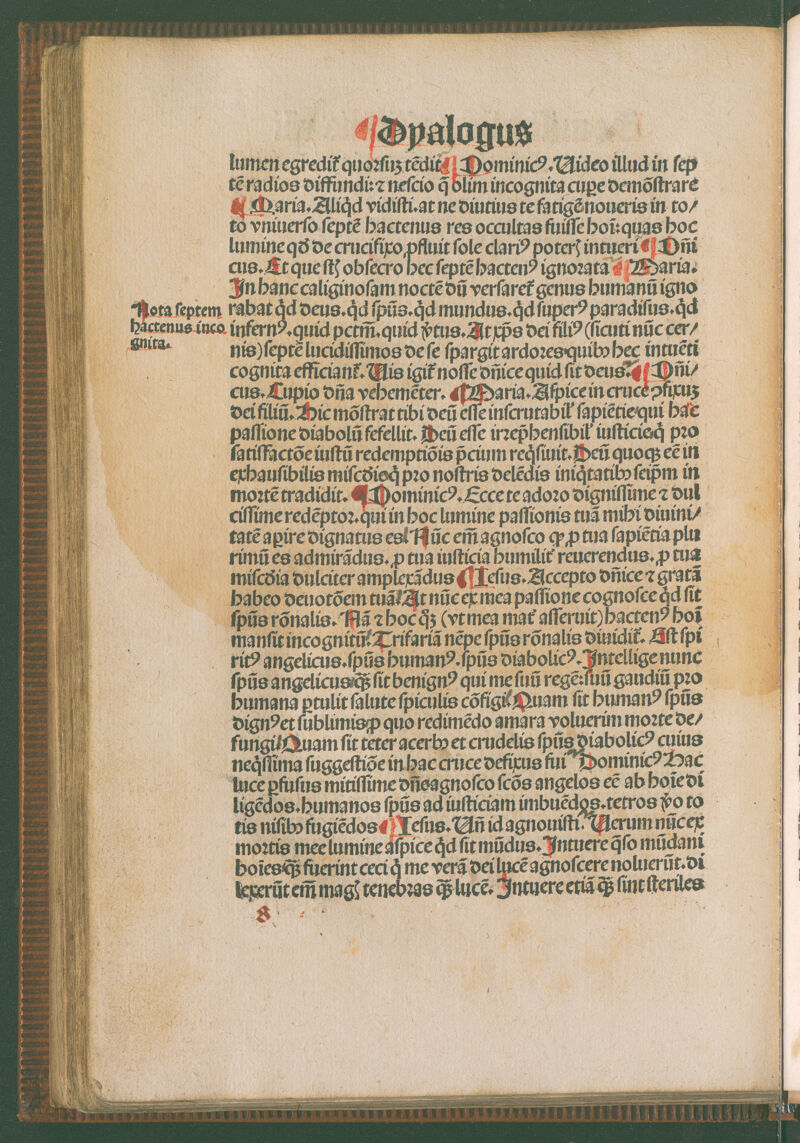 ¶ Dyalogus
lumen egredit᷑ quorsuꝫ tēdit ¶ Dominicꝰ. Uideo illud in sep
tē radios diffundi: ⁊ nescio q̄ olim incognita cupe demōstrare
¶ Maria. Aliq̇d vidisti. at ne diutius te fatigē noueris in to/
to vniuerso septē hactenus res occultas fuisse hoī: quas hoc
lumine qď de crucifixo ꝓfluit sole clariꝰ poteris intueri ¶ Dn̄i
cus. Et que st᷑ obsecro hec septē hactenꝰ ignorata ¶ Maria.
In hanc caliginosam noctē dū versaret᷑ genus humanū igno
Nota septem
hactenus inco
gnita.
rabat q̇d deus. q̇d sp̄us. q̇d mundus. q̇d superꝰ paradisus. q̇d
infernꝰ. quid pctm̄. quid v̓tus. At xp̄s dei filiꝰ (sicuti nūc cer/
nis) septē lucidissimos de se spargit ardores quibꝰ hec intuēti
cognita efficiant᷑. Uis igit᷑ nosse dn̄ice quid sit deus? ¶ Dn̄i/
cus. Cupio dn̄a vehemēter. ¶ Maria. Aspice in cruce ꝯfixuꝫ
dei filiū. Hic mōstrat tibi deū esse inscrutabil᷑ sapiētie qui hac
passione diabolū fefellit. Deū esse irrep̄hensibil᷑ iusticie q̇ pro
satisfactōe iustū redemptiōis p̄cium req̇siuit. Deū quoqꝫ eē in
exhausibilis misc̄die q̇ pro nostris delēdis iniq̇tatibꝰ seip̄m in
mortē tradidit. ¶ Dominicꝰ. Ecce te adoro dignissime ⁊ dul
cissime redēptor. qui in hoc lumine passionis tuā mihi diuini/
tatē apire dignatus es! Nūc em̄ agnosco ꝙ ꝓ tua sapiētia plu
rimū es admirādus. ꝓ tua iusticia humilit᷑ reuerendus. ꝓ tua
misc̄dia dulciter amplexādus ¶ Iesus. Accepto dn̄ice ⁊ gratā
habeo deuotōem tuā! At nūc ex mea passione cognosce q̇d sit
sp̄us rōnalis. Nā ⁊ hoc q̇ꝫ (vt mea mat᷑ asseruit) hactenꝰ hoī
mansit incognitū! Trifariā nēpe sp̄us rōnalis diuidit᷑. Est spi
ritꝰ angelicus. sp̄us humanꝰ. sp̄us diabolicꝰ. Intellige nunc
sp̄us angelicus q̄ꝫ sit benignꝰ qui me suū regē: suū gaudiū pro
humana ꝑtulit salute spiculis cōfigi! Quam sit humanꝰ sp̄us
dignꝰ et sublimis ꝓ quo redimēdo amara voluerim morte de/
fungi! Quam sit teter acerbꝰ et crudelis sp̄us diabolicꝰ cuius
neq̇ssima suggestiōe in hac cruce defixus fui ¶ Dominicꝰ Hac
luce ꝑfusus mitissime dn̄e agnosco scōs angelos eē ab hoīe di
ligēdos. humanos sp̄us ad iusticiam imbuēdos. tetros v̓o to
tis nisibꝰ fugiēdos ¶ Iesus. Un̄ id agnouisti. Uerum nūc ex
mortis mee lumine aspice q̇d sit mūdus. Intuere q̄so mūdani
hoīes q̄ꝫ fuerint ceci q̇ me verā dei lucē agnoscere noluerūt. di
lexerūt em̄ magꝭ tenebras q̄ꝫ lucē. Intuere etiā q̄ꝫ sint steriles